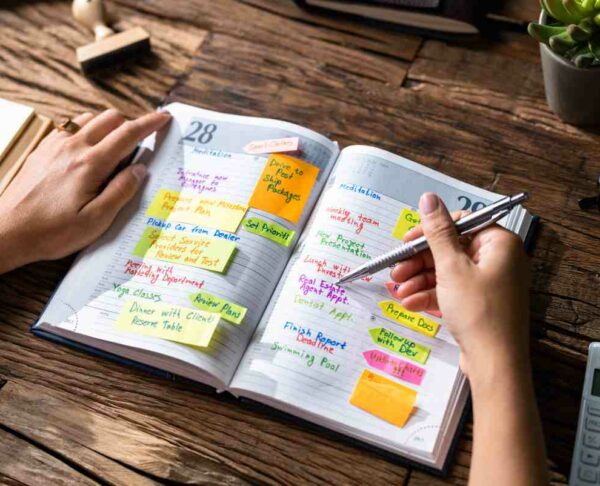 28
Meditation
Introduce new
Manager to
Colleagues
Prepare new
Marketing Plan
Drive to
Post
Ship
Packages
Pickup Car from Dealer
Set Priority
Service
Providers for
Review and Test
Meeting with
Marketing Department
Yoga Classes
Review Plan
Dinner with Client
Reserve Table
29
Meditation
weekly team
New Project
Presentation
Lunch with
Investor
Real Estate
Agent Appt.
Dentist Appt.
Prepare Docs
Finish Report
Deadline
Follow up
with Dev.
Swimming Pool